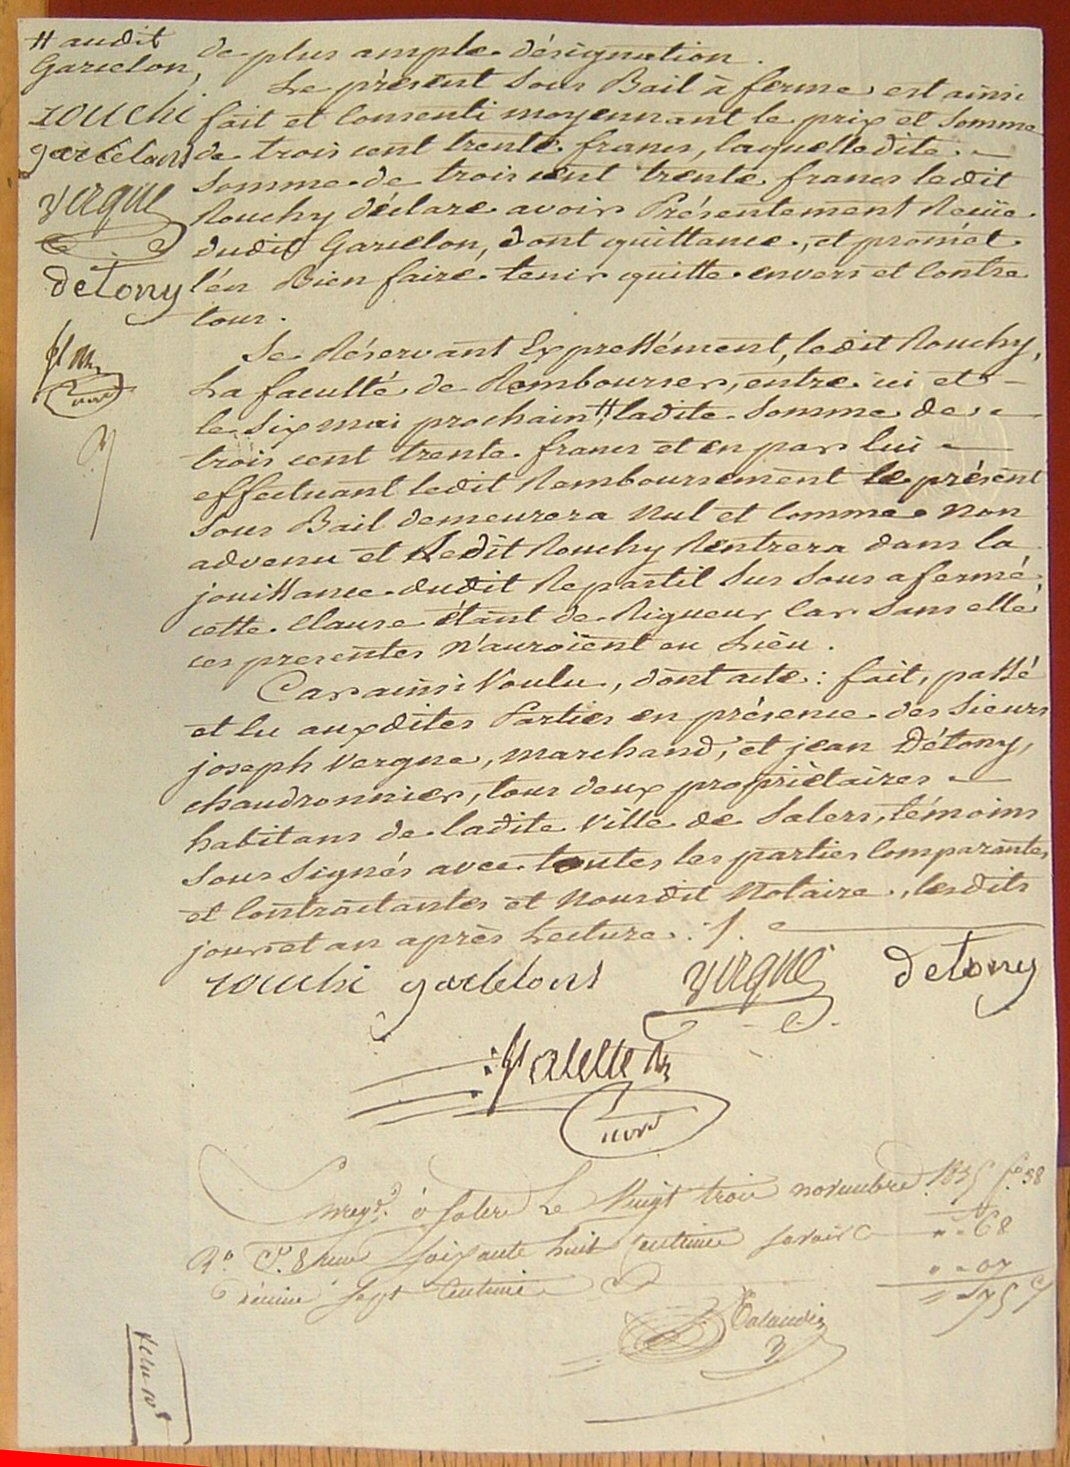 # audit
Garcelon,
rouchi
garcelons
vergne
deTony
de plus ample désignation.
Le présent Sous Bail à ferme est ainsi
fait et Consenti moyennant le prix et Somme
de trois cent trente francs, laquelledite
Somme de trois cent trente francs ledit
Rouchy déclare avoir Présentement Reçüe
dudit Garcelon, dont quittance, et promet
l'én Bien faire tenir quitte envers et Contre
tous.
Se Réservant Expressément, ledit Rouchy,
La faculté de Rembourser, entre ici et
le Six mai prochain # ladite Somme de
trois cent trente francs et en par lui
effectuant ledit Remboursement le présent
Sous Bail demeurera Nul et Comme Non
advenu et Ledit Rouchy Rentrera dans la
jouissance dudit Repartil Sus Sous afermé,
cette Clause étant de Rigueur Car Sans elle
ces presentes N'auroient eu Lieu.
Car ainsi Voulu, dont acte: fait, passé
et lu auxdites Parties en présence des Sieurs
joseph Vergne, Marchand, et jean Détony,
chaudronnier, tous deux propriètaires
habitans de ladite Ville de Salers, témoins
Sous Signés avec toutes les parties Comparantes
et Contractantes et Nousdit Notaire, lesdits
jour et an après Lecture ./.
rouchi garcelons vergne deTony
Valette
Enregé. à Salers Le Vingt trois novembre 18 fo 58
Ro Ce. 8 reçu Soixante huit Centimes Savoir " " 68
Décime Sept Centimes " " 07
" 75